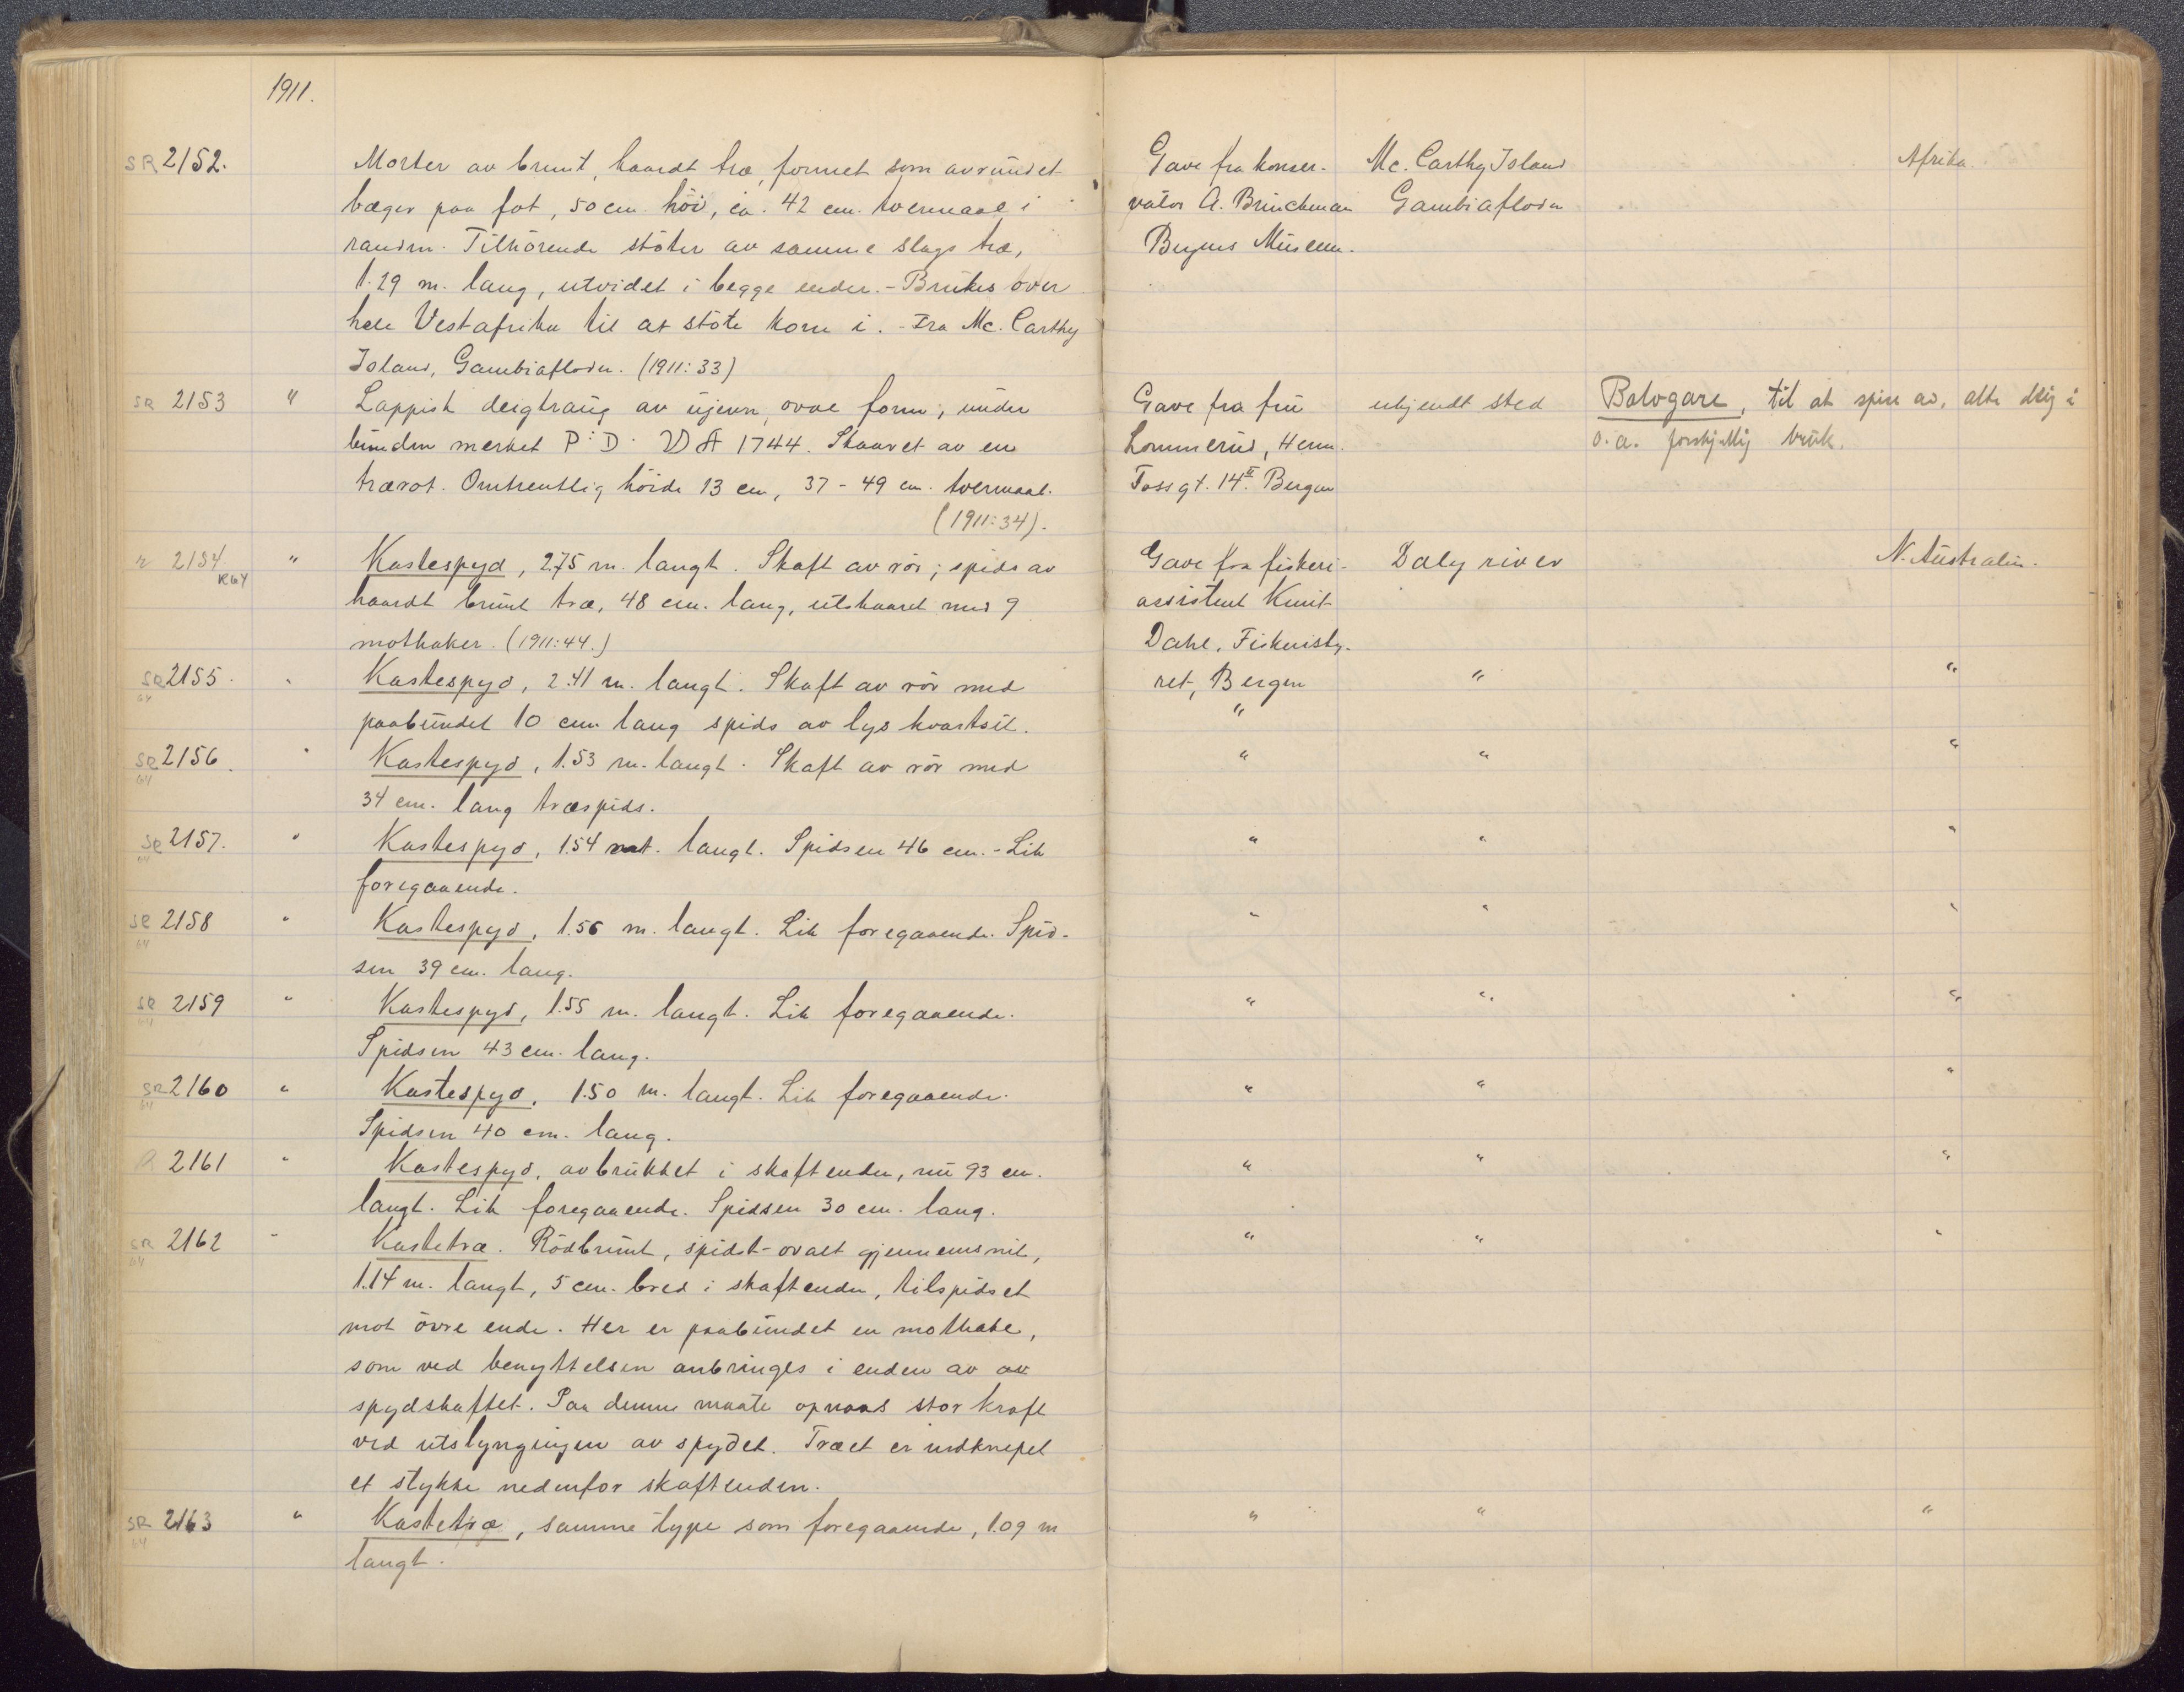 1911.
SR 2152. Morter av brunt, haardt træ, formet som avrundet Gave fra konser- Mc. Carthy Island Afrika.
bæger paa fot, 50 cm. höi, ca. 42 cm. tvermaal i vator A. Brinckman Gambiafloden
randen. Tilhörende stöter av samme slags træ, Bergens Museum.
1.29 m. lang, utvidet i begge ender. - Brukes over
hele Vestafrika til at stöte korn i. - Fra Mc. Carthy
Island, Gambiafloden. (1911:33)
SR 2153 " Lappisk deigtraug av ujevn, oval form, under Gave fra fru ukjendt sted Balvgare, til at spise av, elte deig i
bunden merket P:D· 1744. Skaaret av en Lommerud, Herm. o.a. forskjellig bruk.
trærot. Omtrentlig höide 13 cm, 37 - 49 cm. tvermaal. Foss gt. 14 II. Bergen
(1911:34).
r 2154 " Kastespyd, 2.75 m. langt. Skaft av rör; spids av Gave fra fiskeri- Daly river N. Australien.
R64 haardt brunt træ, 48 cm. lang, utskaaret med 9 assistent Knut
mothaker. (1911:44.) Dahl, Fiskeristy-
SR 2155. " Kastespyd, 2.41 m. langt. Skaft av rör med ret, Bergen " "
64 paabundet 10 cm lang spids av lys kvartsit. "
SR 2156. " Kastespyd, 1.53 m. langt. Skaft av rör med " " "
64 34 cm. lang træspids.
SR 2157. " Kastespyd, 1.54 langt. Spidsen 46 cm. - Lik " " "
64 foregaaende.
SR 2158 " Kastespyd, 1.56 m. langt. Lik foregaaende. Spid- " " "
64 sen 39 cm. lang.
SR 2159 " Kastespyd, 1.55 m. langt. Lik foregaaende. " " "
64 Spidsen 43 cm. lang.
SR 2160 " Kastespyd, 1.50 m. langt. Lik foregaaende. " " "
64 Spidsen 40 cm. lang.
R 2161 " Kastespyd, avbrukket i skaftenden, nu 93 cm. " " "
langt. Lik foregaaende. Spidsen 30 cm. lang.
SR 2162 " Kastetræ. Rödbrunt, spidst-ovalt gjennemsnit, " " "
64 1.14 m. langt, 5 cm. bred i skaftenden, tilspidset
mot övre ende. Her er paabundet en mothake,
som ved benyttelsen anbringes i enden av
spydskaftet. Paa denne maate opnaas stor kraft
ved utslyngingen av spydet. Træet er indknepet
et stykke nedenfor skaftenden.
SR 2163 " Kastetræ, samme type som foregaaende, 1.09 m " " "
64 langt.